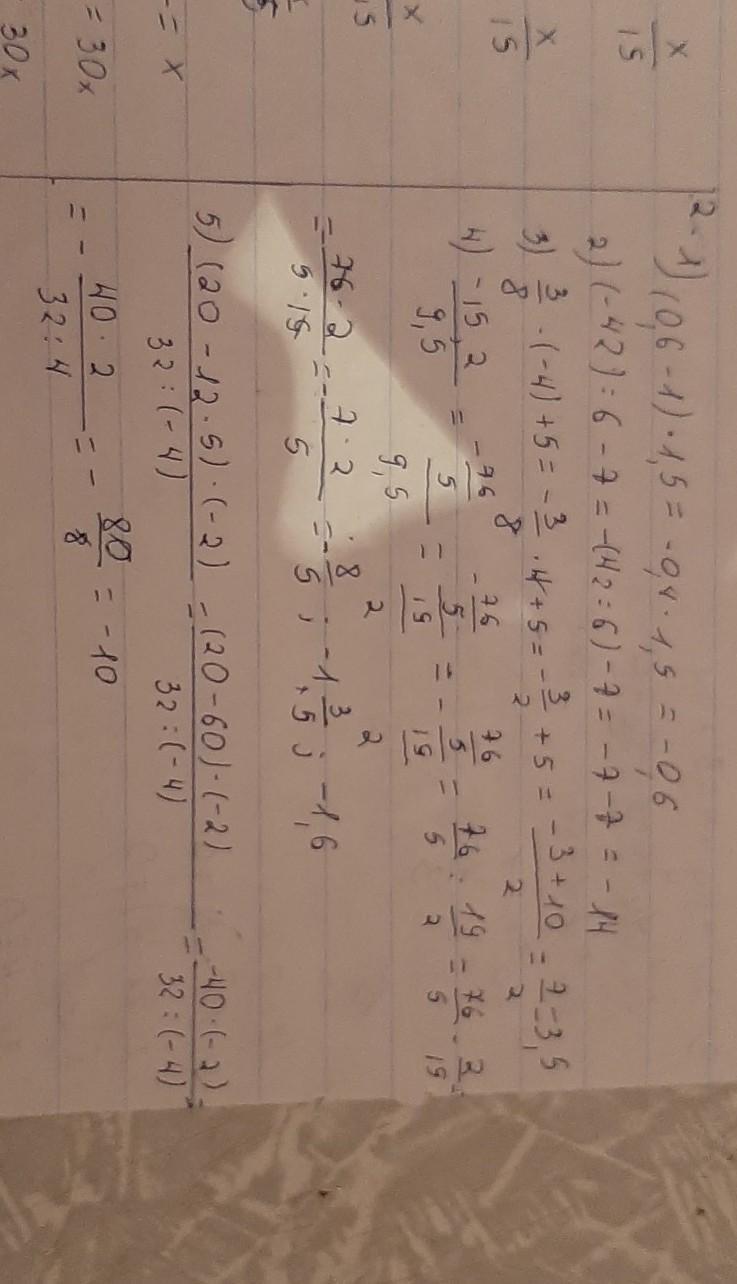 x/15
x/15
x
15
= x
= 30x
30x
2-1) (0,6 - 1) · 1,5 = -0,4 · 1,5 = -0,6
2) (-42) : 6 - 7 = -(42 : 6) - 7 = -7 - 7 = -14
3) 3/8 · (-4) + 5 = -3/8 · 4 + 5 = -3/2 + 5 = (-3 + 10)/2 = 7/2 - 3,5
4) -15,2/9,5 = (-76/5)/9,5 = (-76/5)/(19/2) = -(76/5)/(19/2) = 76/5 : 19/2 = 76/5 · 2/19 =
= -(76 · 2)/(5 · 19) = -(7 · 2)/5 = -8/5 ; -1 3/5 ; -1,6
5) ((20 - 12 · 5) · (-2))/(32 : (-4)) = ((20 - 60) · (-2))/(32 : (-4)) = (-40 · (-2))/(32 : (-4)) =
= -(40 · 2)/(32 : 4) = -80/8 = -10